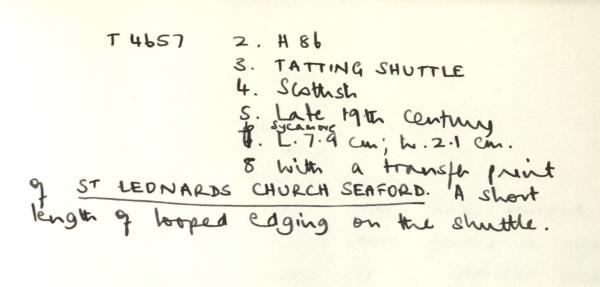 T 4657 2. H 86
3. TATTING SHUTTLE
4. Scottish
5. Late 19th century
sycamore
6. L. 7.9 cm; w. 2.1 cm.
8 with a transfer print
of ST LEONARDS CHURCH SEAFORD. A short
length of looped edging on the shuttle.